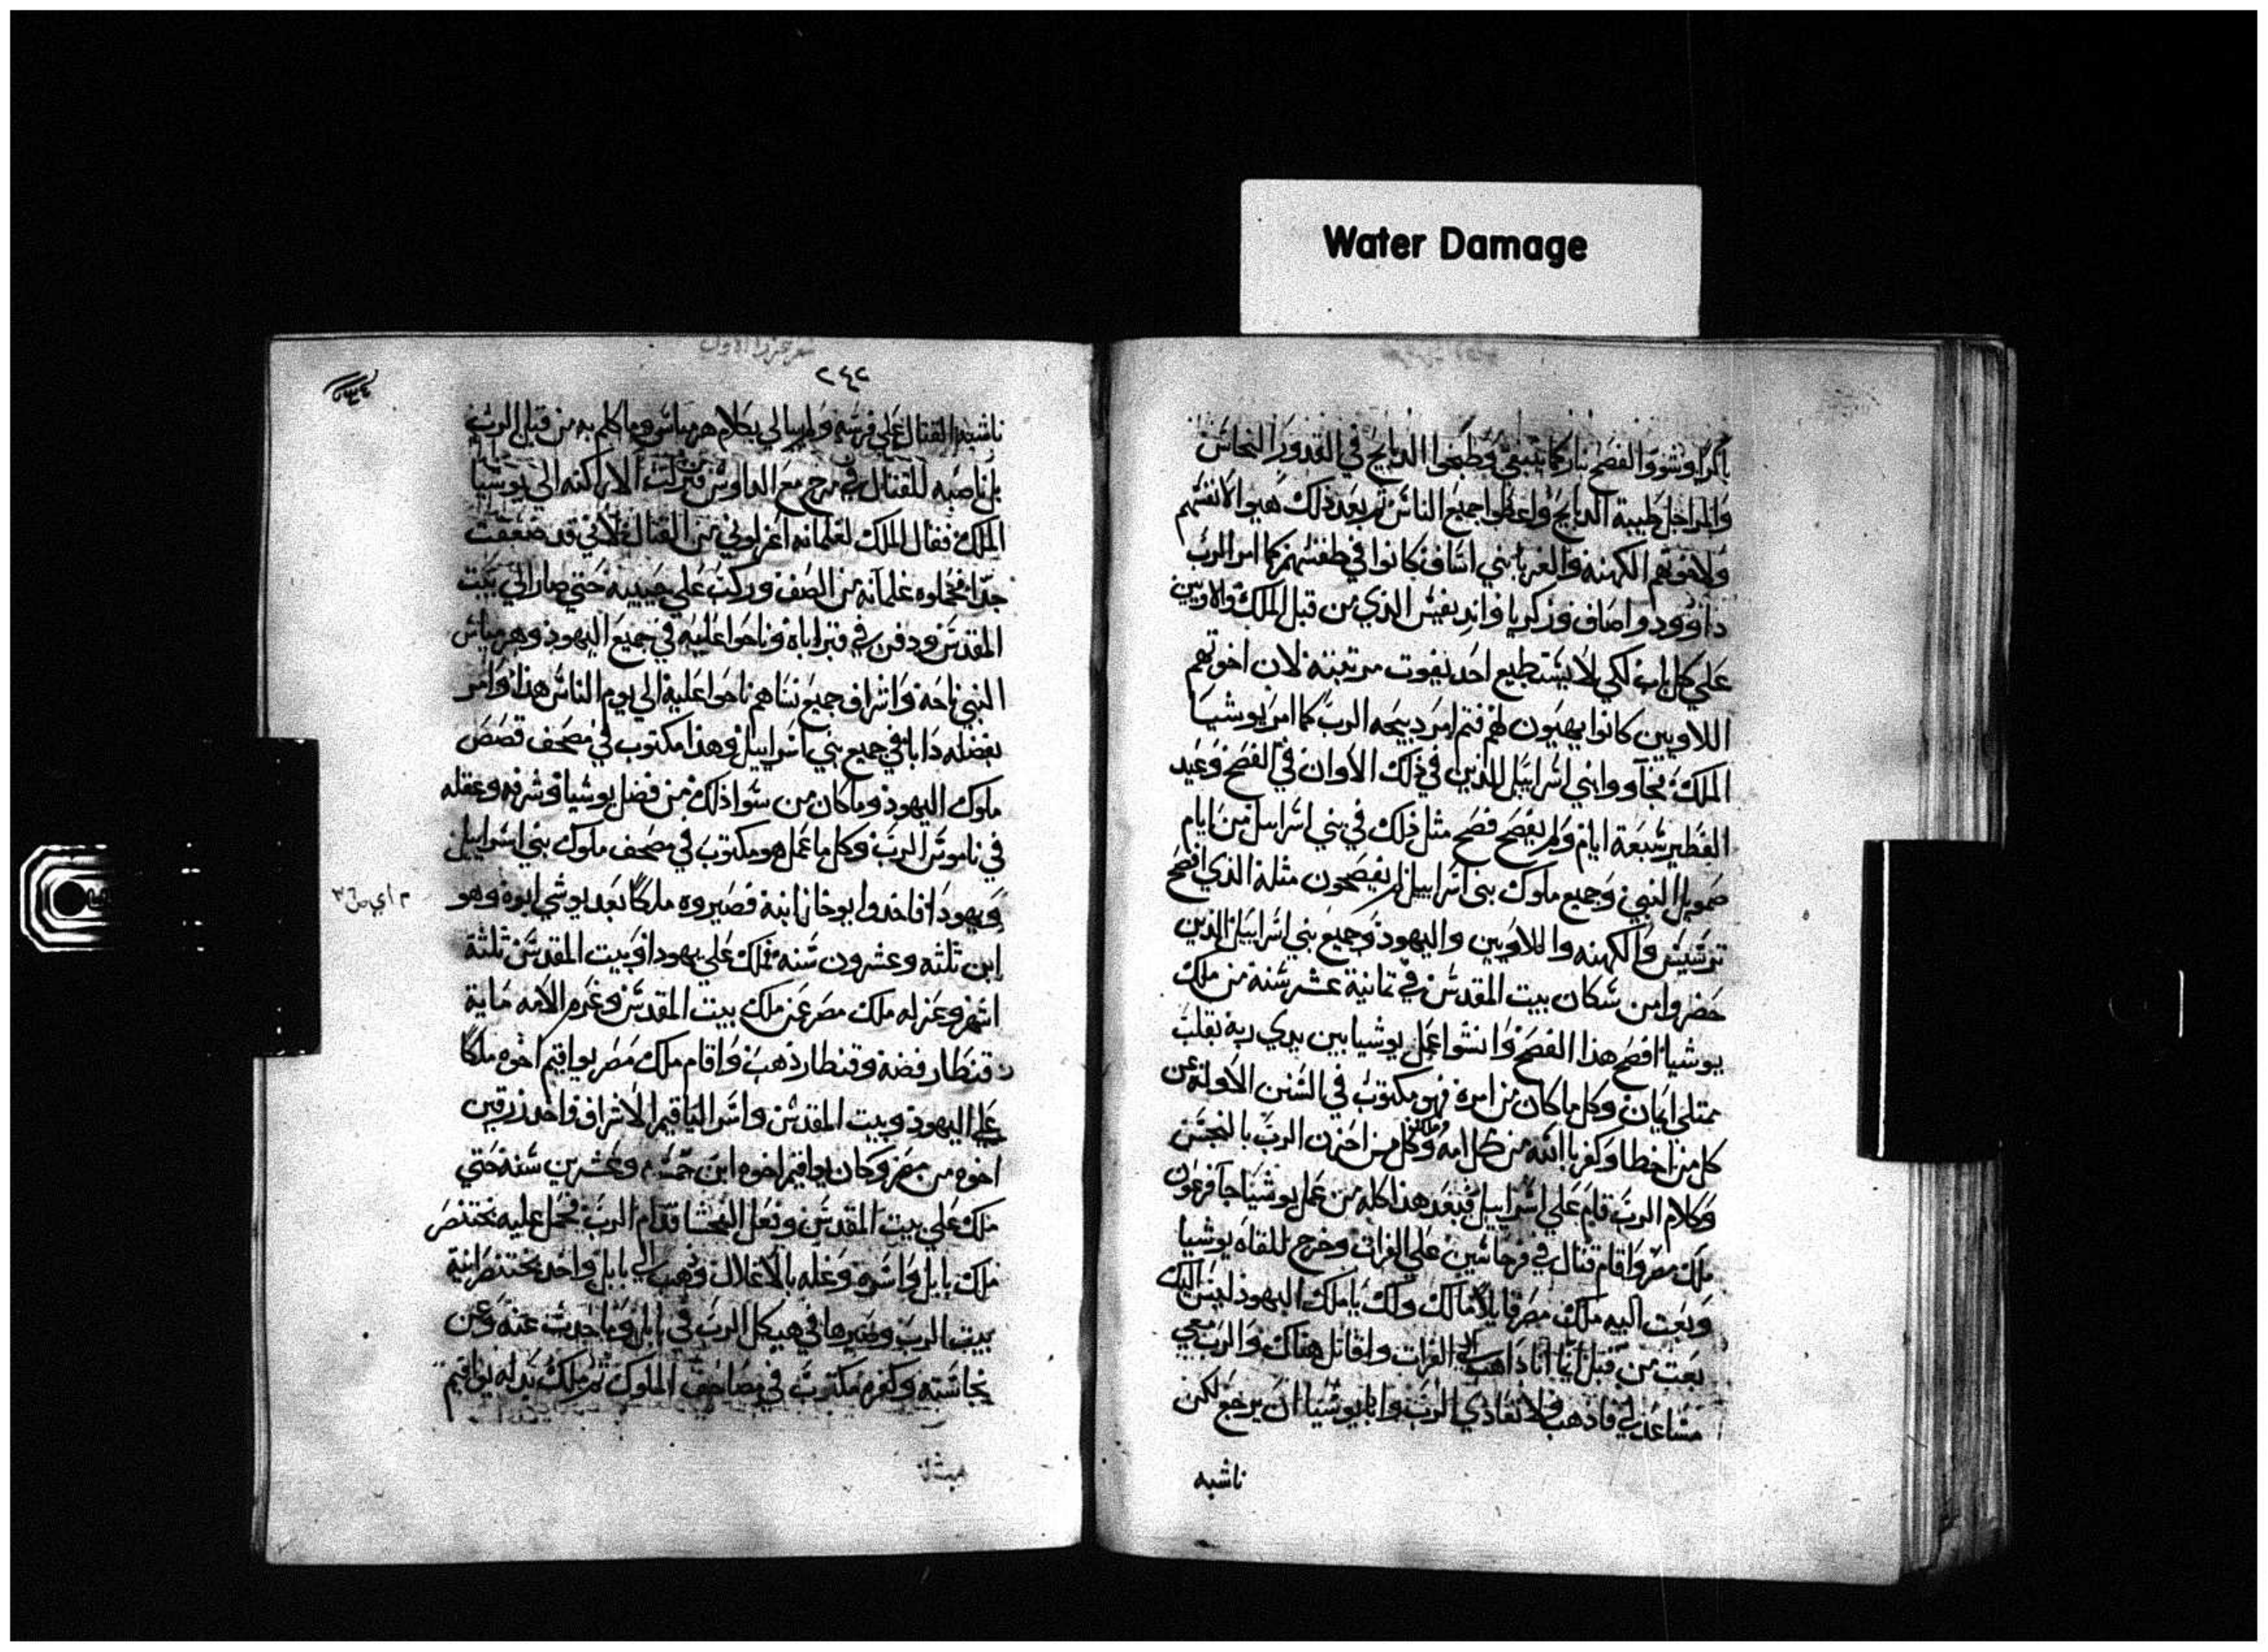 Water Damage
باكرا وشووا الفصح بنار كما ينبغي وطبخوا الدبايح في القدور النحاس
والمراجل طيبة الدبايح واعطوا جميع الناس ثم بعد ذلك هيوا لانفسهم
ولاخوتهم الكهنه والغربا بني اساف كانوا في طقسهم كما امر الرب
داوود واصاف وزكريا واديفيس الذي من قبل الملك والاويين
علي كل باب لكي لا يستطيع احد يفوت مرتبته لان اخوتهم
اللاويين كانوا يهيون لهم فتم امر دبيحه الرب كما امر يوشيا
الملك فجآووا بني اسراييل الذين في ذلك الاوان في الفصح وعيد
الفطير سبعة ايام ولم يفصح فصح مثل ذلك في بني اسراييل من ايام
صمويل النبي وجميع ملوك بني اسراييل لم يفصحون مثله الذي افصح
والكهنه واللاويين واليهود وجميع بني اسراييل الذين
حضروا من سكان بيت المقدس في ثمانية عشر سنة من ملك
يوشيا افصح هذا الفصح وانشوا عمل يوشيا بين يدي ربه بقلب
ممتلي ايمان وكل ما كان من امره فهو مكتوب في السنن الاوله عن
كل من اخطا وكفر بالله من كل امه وكل من احزن الرب بالنجس
وكلام الرب قام علي اسراييل فبعد هذا كله من عمل يوشيا جا فرعون
ملك مصر واقام قتال في فرحاسين علي الفرات وخرج للقاه يوشيا
وبعت اليه ملك مصر قايلا مالك ولك يا ملك اليهود ليس اليك
بعت من قبل انا انا داهب الي الفرات واقاتل هناك والرب معي
مساعد لي فادهب ولا تقادي الرب وابا يوشيا ان يرجع لكن
ناشبه
٢٤٢
ناشبه القتال علي فرسه ولم يبالي بكلام هرمياس وما كلم به من قبل الرب
بل ناصبه للقتال في مرج مع الداوس فنزلت الاراكنه الي يوشيا
الملك فقال الملك لغلمانه اعزلوني من القتال لاني قد ضعفت
جدا فحملوه غلمانه من الصف وركب علي جيبيه حتي صار الي بيت
المقدس ودفن في قبر اباه وناحوا عليه في جميع اليهود وهرمياس
النبي ناحه واشراف جميع نساهم ناحوا عليه الي يوم الناس هذا وامر
بفضله دايما في جميع بني اسراييل وهذا مكتوب في مصحف قصص
ملوك اليهود وما كان من سوا ذلك من فضل يوشيا وشرفه وعقله
في ناموس الرب وكل ما عمل هو مكتوب في مصحف ملوك بني اسراييل
ويهودا فاخدوا يوخاز ابنه فصيروه ملكا بعد يوشي ابوه وهو
ابن ثلثه وعشرون سنه فملك علي يهودا وبيت المقدس ثلثة
اشهر وعزله ملك مصر عن ملك بيت المقدس وغرم الامه ماية
قنطار فضه وقنطار ذهب واقام ملك مصر يواقيم اخوه ملكا
علي اليهود وبيت المقدس واسر الياقيم الاشراف واخد زرقين
اخوه من مصر وكان يواقيم اخوه ابن خمسه وعشرين سنة حتي
ملك علي بيت المقدس وفعل الفحشا قدام الرب فحمل عليه بختنصر
ملك بابل واسره وغله بالاغلال وذهب الي بابل واخد بختنصر انية
بيت الرب وصيرها في هيكل الرب في بابل وما حدث عنه وعن
نجاسته وكفره مكتوب في مصاحف الملوك ثم ملك بدله يواقيم